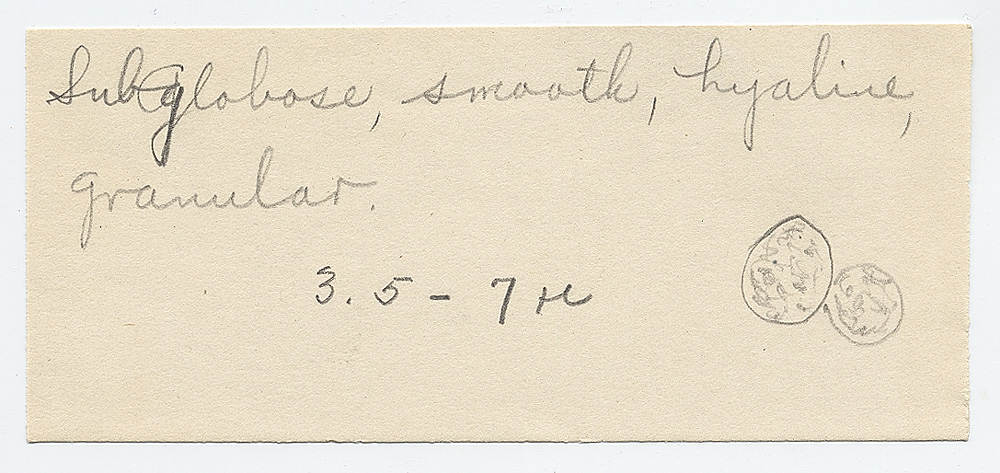 Subglobose, smooth, hyaline,
granular.
3.5 - 7 µ